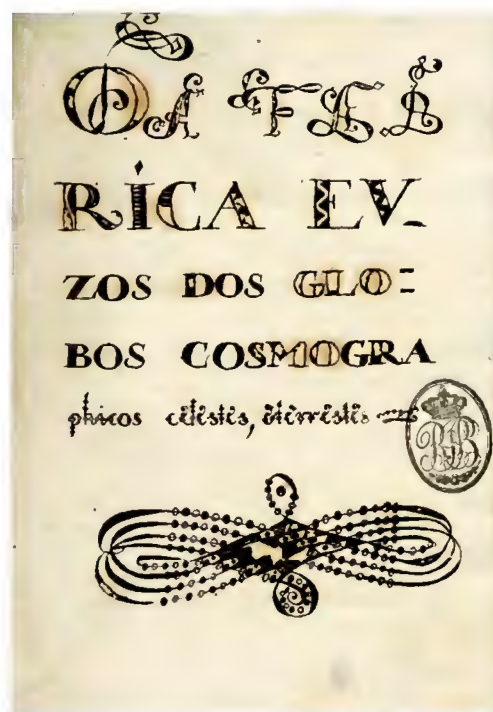 DA FA.B
RICA EV-
ZOS DOS GLO=
BOS COSMOGRA
phicos celestes, eterrestes